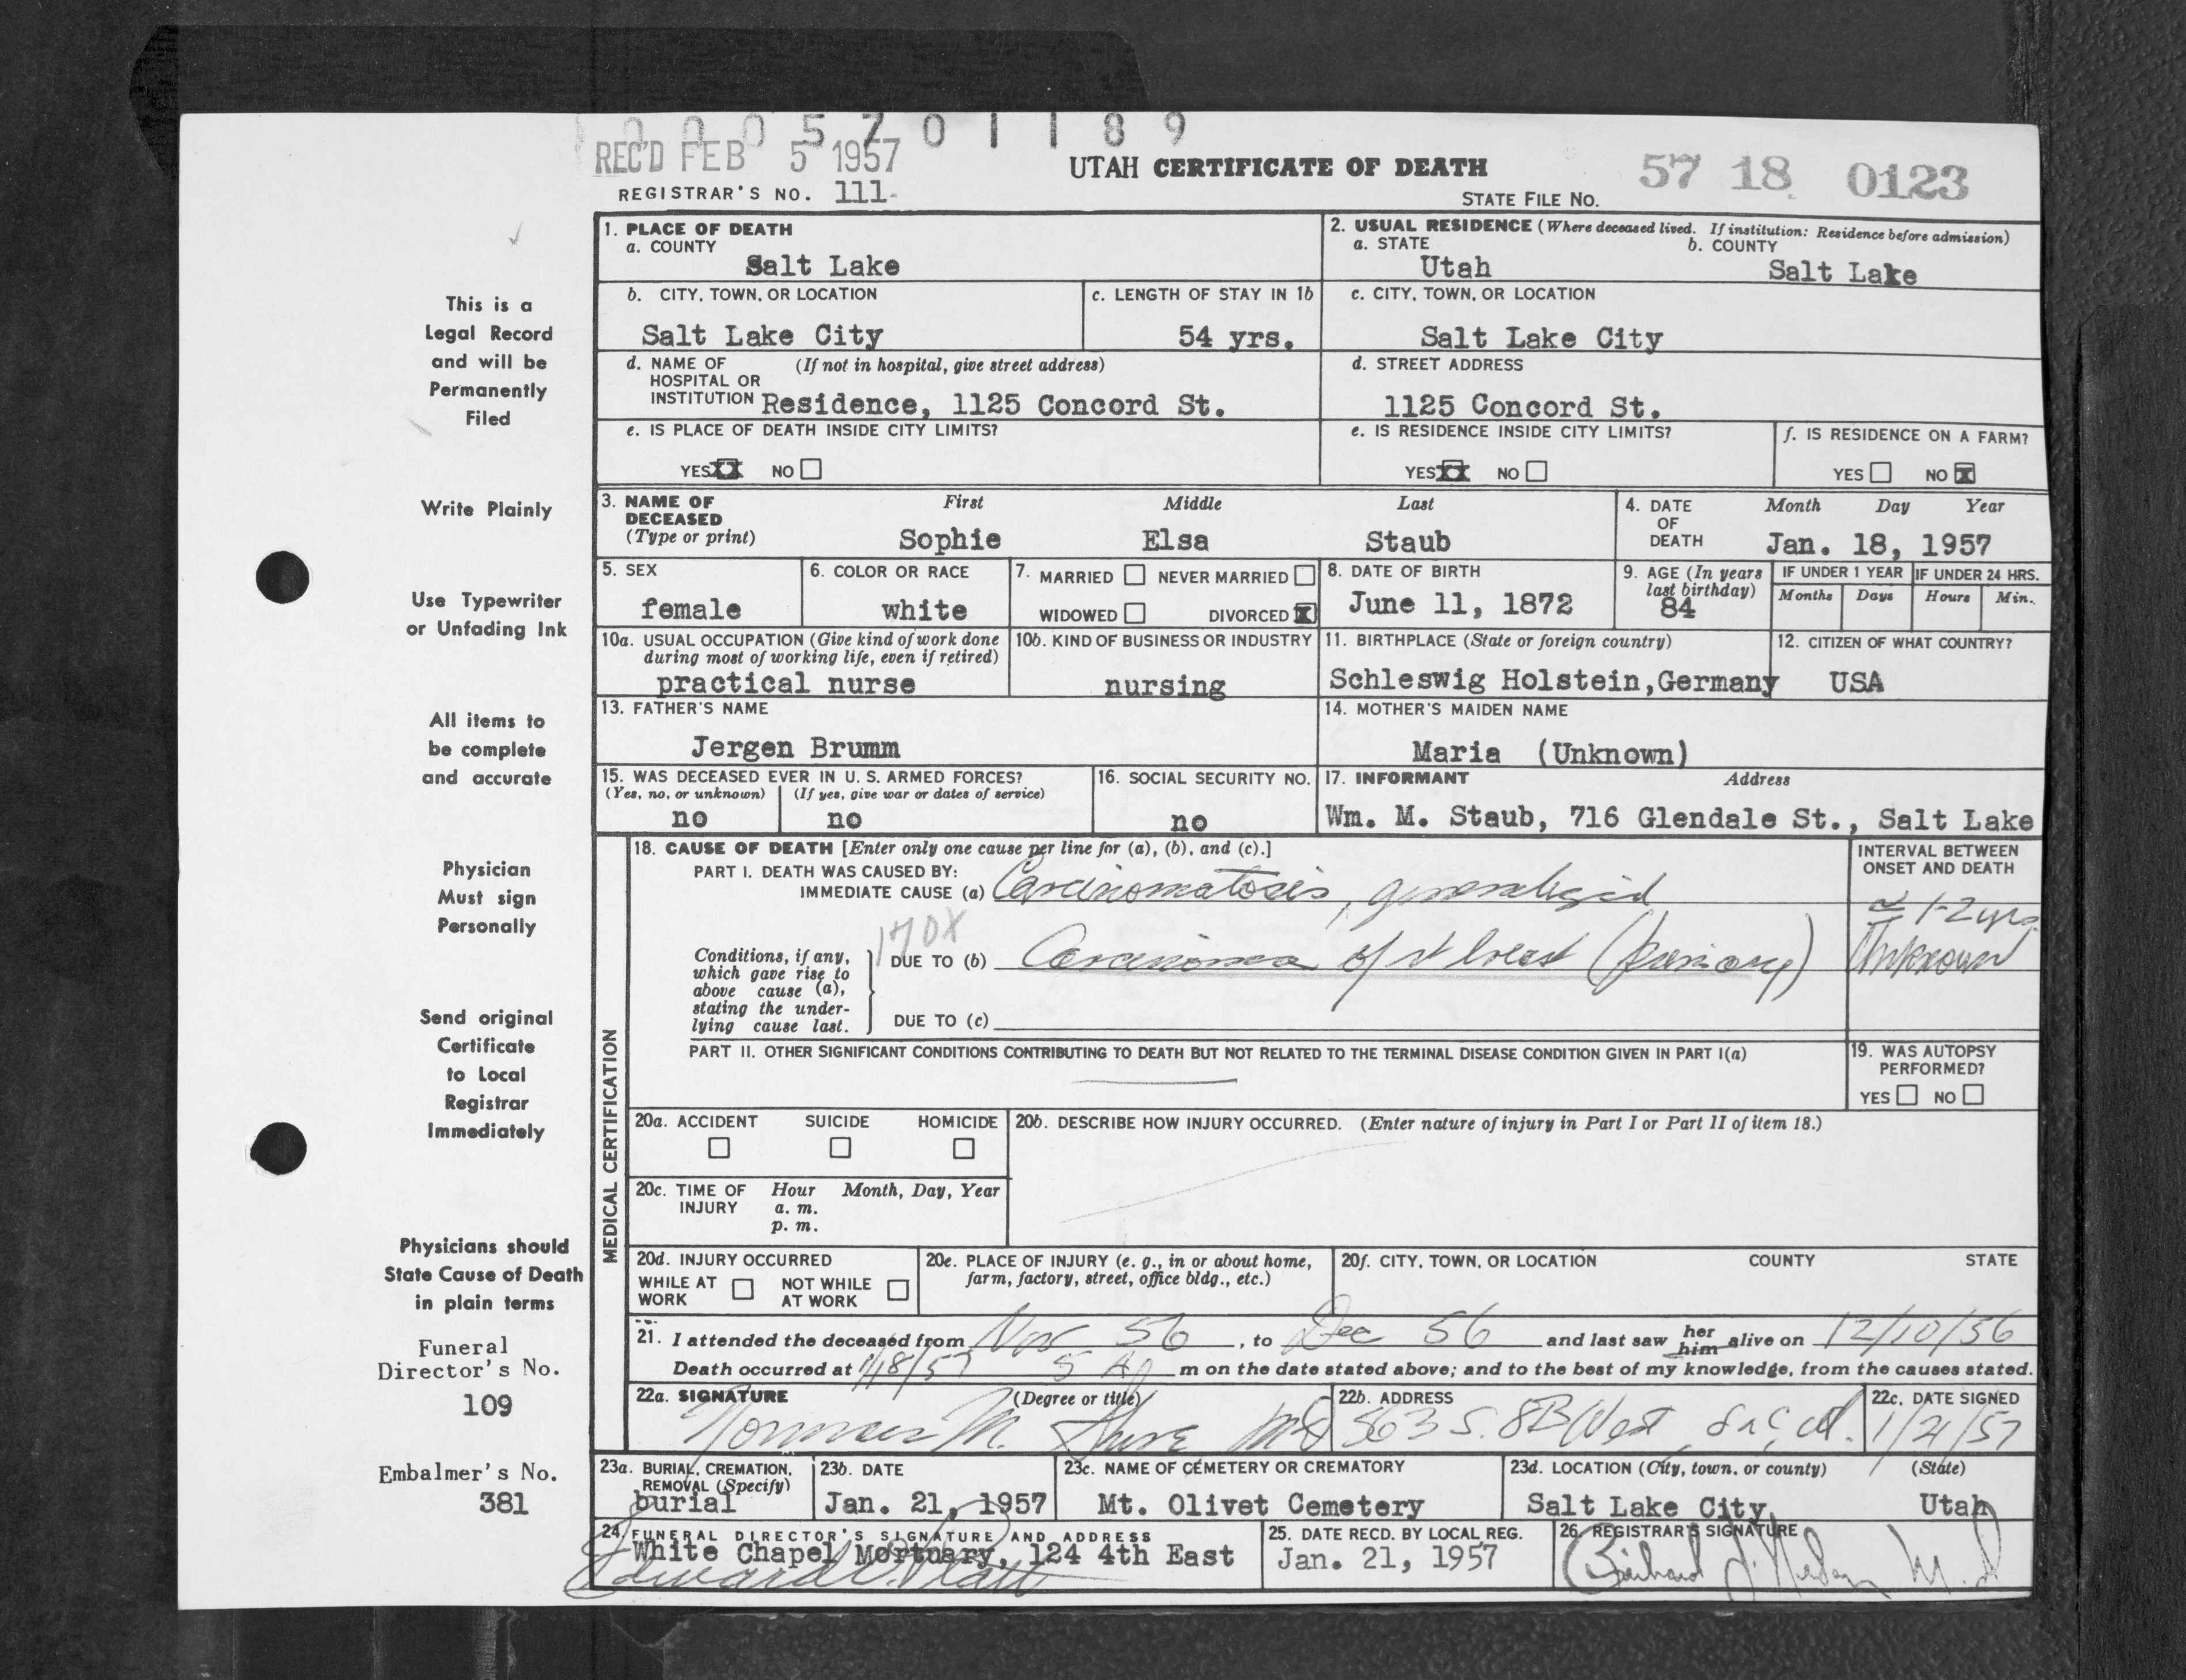 0005701189
REC'D FEB 5 1957
UTAH CERTIFICATE OF DEATH
57 18 0123
REGISTRAR'S NO. 111
STATE FILE No.
This is a
Legal Record
and will be
Permanently
Filed
Write Plainly
Use Typewriter
or Unfading Ink
All items to
be complete
and accurate
Physician
Must sign
Personally
Send original
Certificate
to Local
Registrar
Immediately
Physicians should
State Cause of Death
in plain terms
Funeral
Director's No.
109
Embalmer's No.
381
1. PLACE OF DEATH
a. COUNTY
Salt Lake
2. USUAL RESIDENCE (Where deceased lived. If institution: Residence before admission)
a. STATE b. COUNTY
Utah Salt Lake
b. CITY, TOWN, OR LOCATION
Salt Lake City
c. LENGTH OF STAY IN 1b
54 yrs.
c. CITY, TOWN, OR LOCATION
Salt Lake City
d. NAME OF (If not in hospital, give street address)
HOSPITAL OR
INSTITUTION Residence, 1125 Concord St.
d. STREET ADDRESS
1125 Concord St.
e. IS PLACE OF DEATH INSIDE CITY LIMITS?
YES XX NO
e. IS RESIDENCE INSIDE CITY LIMITS?
YES XX NO
f. IS RESIDENCE ON A FARM?
YES NO X
3. NAME OF First Middle Last
DECEASED
(Type or print) Sophie Elsa Staub
4. DATE Month Day Year
OF
DEATH Jan. 18, 1957
5. SEX
female
6. COLOR OR RACE
white
7. MARRIED NEVER MARRIED
WIDOWED DIVORCED X
8. DATE OF BIRTH
June 11, 1872
9. AGE (In years
last birthday)
84
IF UNDER 1 YEAR
Months Days
IF UNDER 24 HRS.
Hours Min.
10a. USUAL OCCUPATION (Give kind of work done
during most of working life, even if retired)
practical nurse
10b. KIND OF BUSINESS OR INDUSTRY
nursing
11. BIRTHPLACE (State or foreign country)
Schleswig Holstein,Germany
12. CITIZEN OF WHAT COUNTRY?
USA
13. FATHER'S NAME
Jergen Brumm
14. MOTHER'S MAIDEN NAME
Maria (Unknown)
15. WAS DECEASED EVER IN U. S. ARMED FORCES?
(Yes, no, or unknown) (If yes, give war or dates of service)
no no
16. SOCIAL SECURITY NO.
no
17. INFORMANT Address
Wm. M. Staub, 716 Glendale St., Salt Lake
MEDICAL CERTIFICATION
18. CAUSE OF DEATH [Enter only one cause per line for (a), (b), and (c).]
PART I. DEATH WAS CAUSED BY:
IMMEDIATE CAUSE (a) Carcinomatosis, generalized
INTERVAL BETWEEN
ONSET AND DEATH
≃ 1-2 yrs
170X
Conditions, if any,
which gave rise to
above cause (a),
stating the under-
lying cause last.
DUE TO (b) Carcinoma of rt breast (primary)
Unknown
DUE TO (c)
PART II. OTHER SIGNIFICANT CONDITIONS CONTRIBUTING TO DEATH BUT NOT RELATED TO THE TERMINAL DISEASE CONDITION GIVEN IN PART I(a)
19. WAS AUTOPSY
PERFORMED?
YES NO
20a. ACCIDENT SUICIDE HOMICIDE
20b. DESCRIBE HOW INJURY OCCURRED. (Enter nature of injury in Part I or Part II of item 18.)
20c. TIME OF Hour Month, Day, Year
INJURY a. m.
p. m.
20d. INJURY OCCURRED
WHILE AT NOT WHILE
WORK AT WORK
20e. PLACE OF INJURY (e. g., in or about home,
farm, factory, street, office bldg., etc.)
20f. CITY, TOWN, OR LOCATION COUNTY STATE
21. I attended the deceased from Nov 56, to Dec 56 and last saw her him alive on 12/10/56
Death occurred at 1/18/57 5 A m on the date stated above; and to the best of my knowledge, from the causes stated.
22a. SIGNATURE (Degree or title)
Norman M. MD
22b. ADDRESS
563 S. 8 West
22c. DATE SIGNED
1/21/57
23a. BURIAL, CREMATION,
REMOVAL (Specify)
burial
23b. DATE
Jan. 21, 1957
23c. NAME OF CEMETERY OR CREMATORY
Mt. Olivet Cemetery
23d. LOCATION (City, town, or county) (State)
Salt Lake City, Utah
24. FUNERAL DIRECTOR'S SIGNATURE AND ADDRESS
White Chapel Mortuary, 124 4th East
Edward Platt
25. DATE RECD. BY LOCAL REG.
Jan. 21, 1957
26. REGISTRAR'S SIGNATURE
M.D